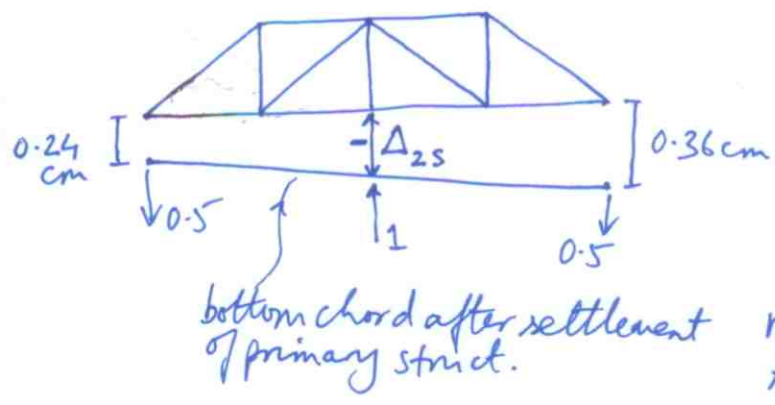 0.24
cm
-Δ2S
0.36cm
0.5
1
0.5
bottom chord after settlement
of primary struct.